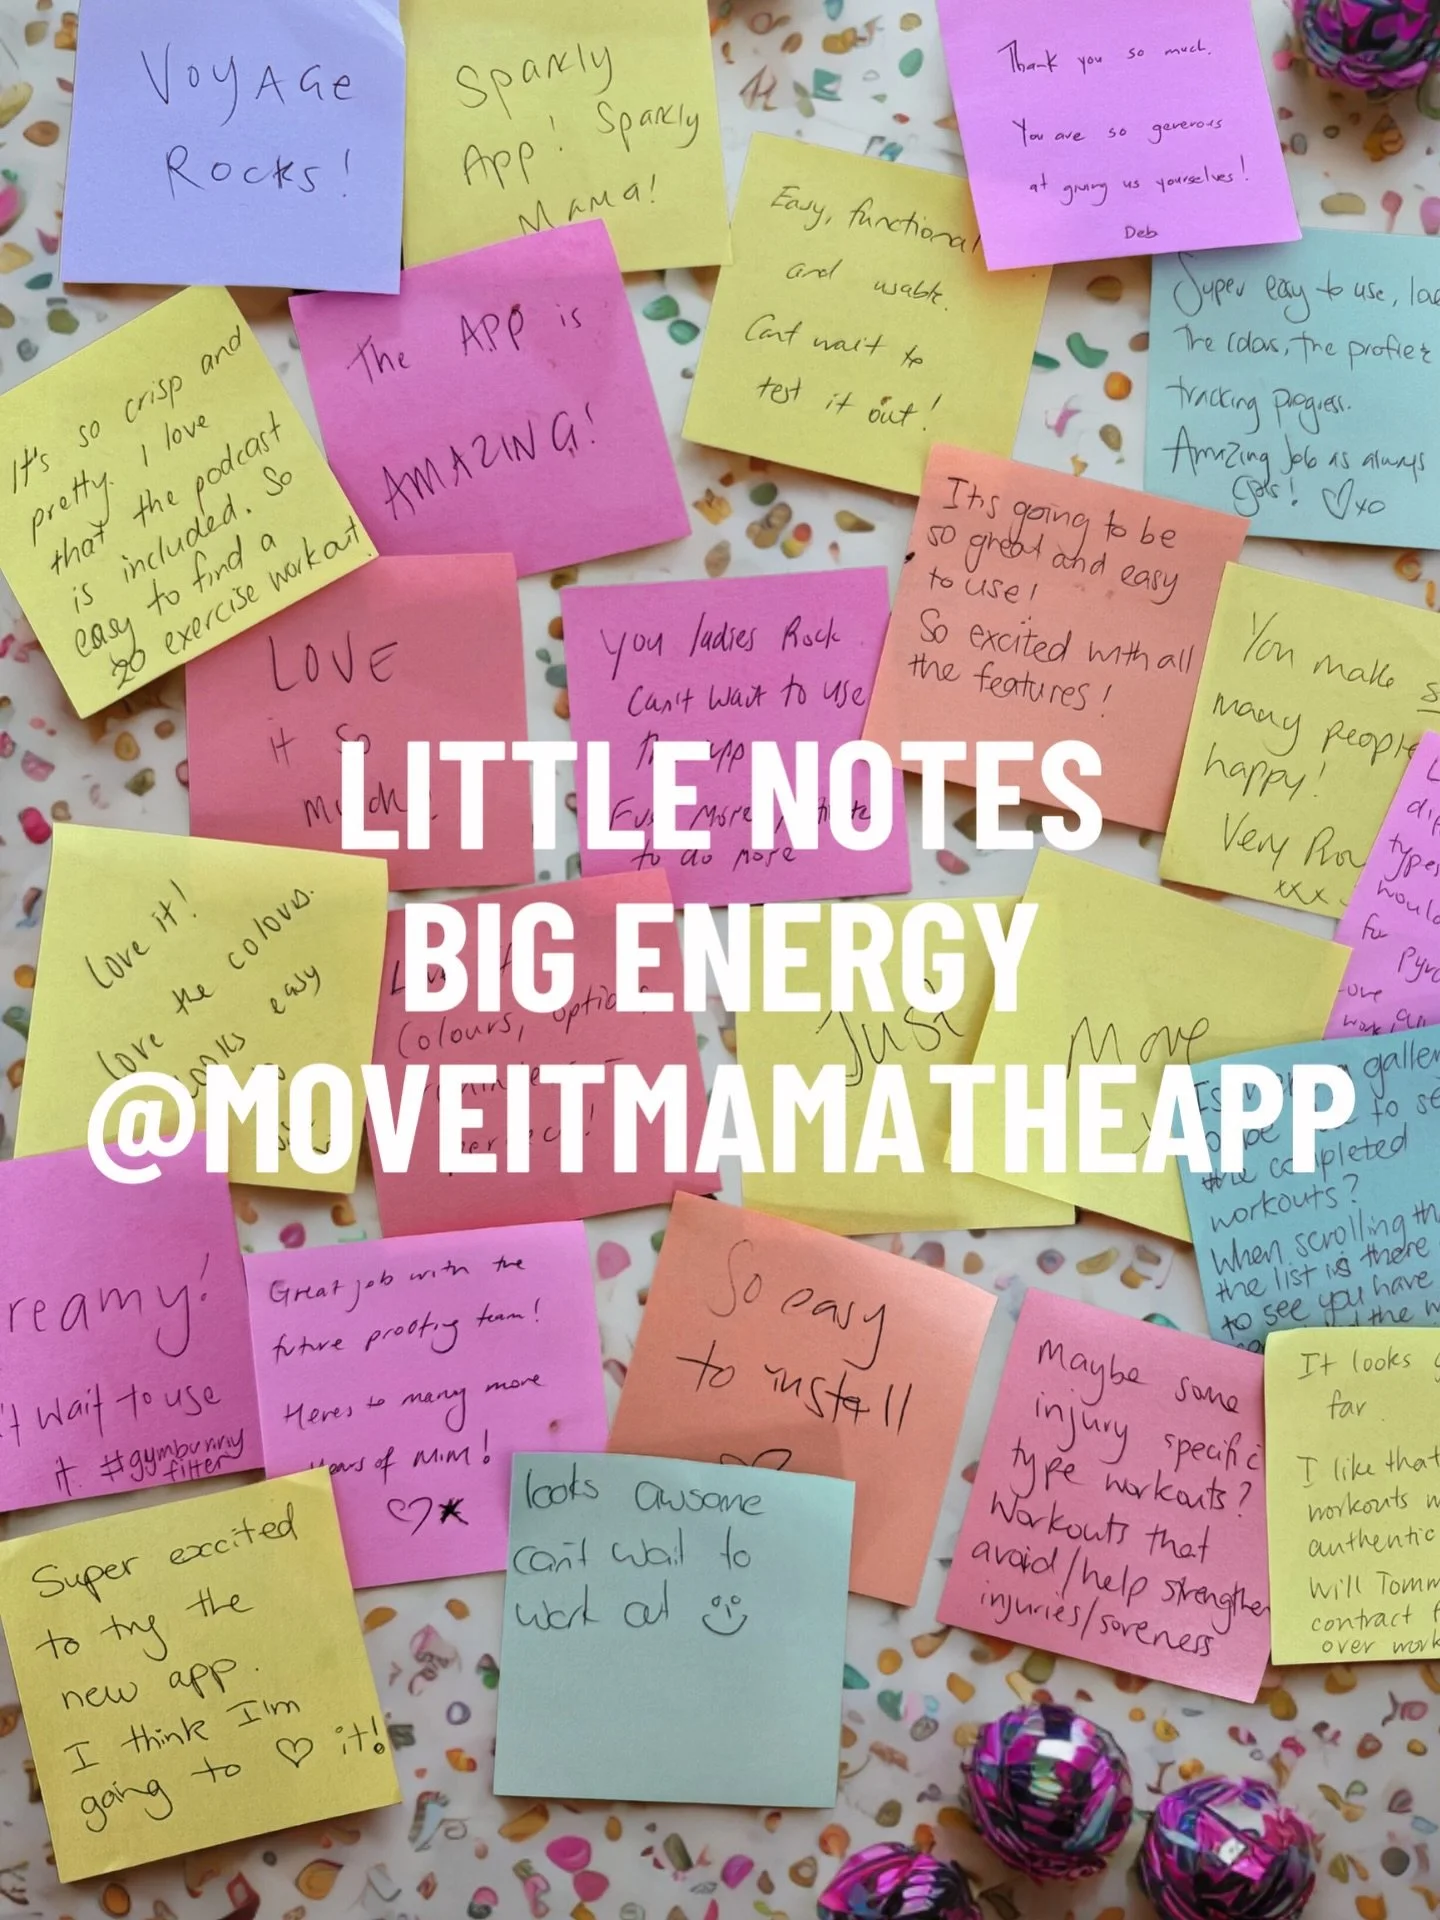 VOYAGE
ROCKS!
Sparkly
App! Sparkly
Mama!
Thank you so much.
You are so generous
at giving us yourselves!
Deb
Easy, functional
and usable.
Cant wait to
test it out!
Super easy to use, lo
The colors, the profile &
tracking progress.
Amazing Job as always
Gals! ♡xo
It's so crisp and
pretty. I love
that the podcast
is included. So
easy to find a
20 exercise workout.
The APP is
AMAZING!
It's going to be
so great and easy
to use!
So excited with all
the features!
LOVE
it so
much!
you ladies Rock
Can't wait to use
the app
to do more
You make
many people
happy!
Very
xxx
di
types
would
for
LITTLE NOTES
BIG ENERGY
@MOVEITMAMATHEAPP
Love it!
love the colours.
looks easy
Colours, options
Just
Move
galler
to se
the completed
workouts?
When scrolling th
the list is there
to see you have
the w
reamy!
't wait to use
it. #gymbunny
filter
Great job with the
future proofing team!
Heres to many more
years of MIM!
♡★
So easy
to install
Maybe some
injury specific
type workouts?
Workouts that
avoid/help strengthen
injuries/soreness
It looks g
far.
I like that
workouts w
authentic
Will Tomm
contract f
over work
Super excited
to try the
new app.
I think I'm
going to ♡ it!
looks awsome
can't wait to
work out